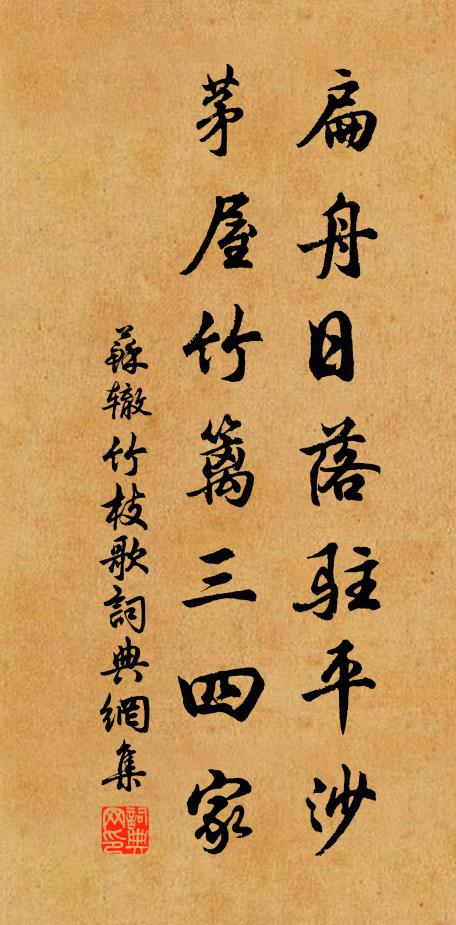 扁舟日落驻平沙
茅屋竹篱三四家
蘇辙竹枝歌詞典網集
詞典网印